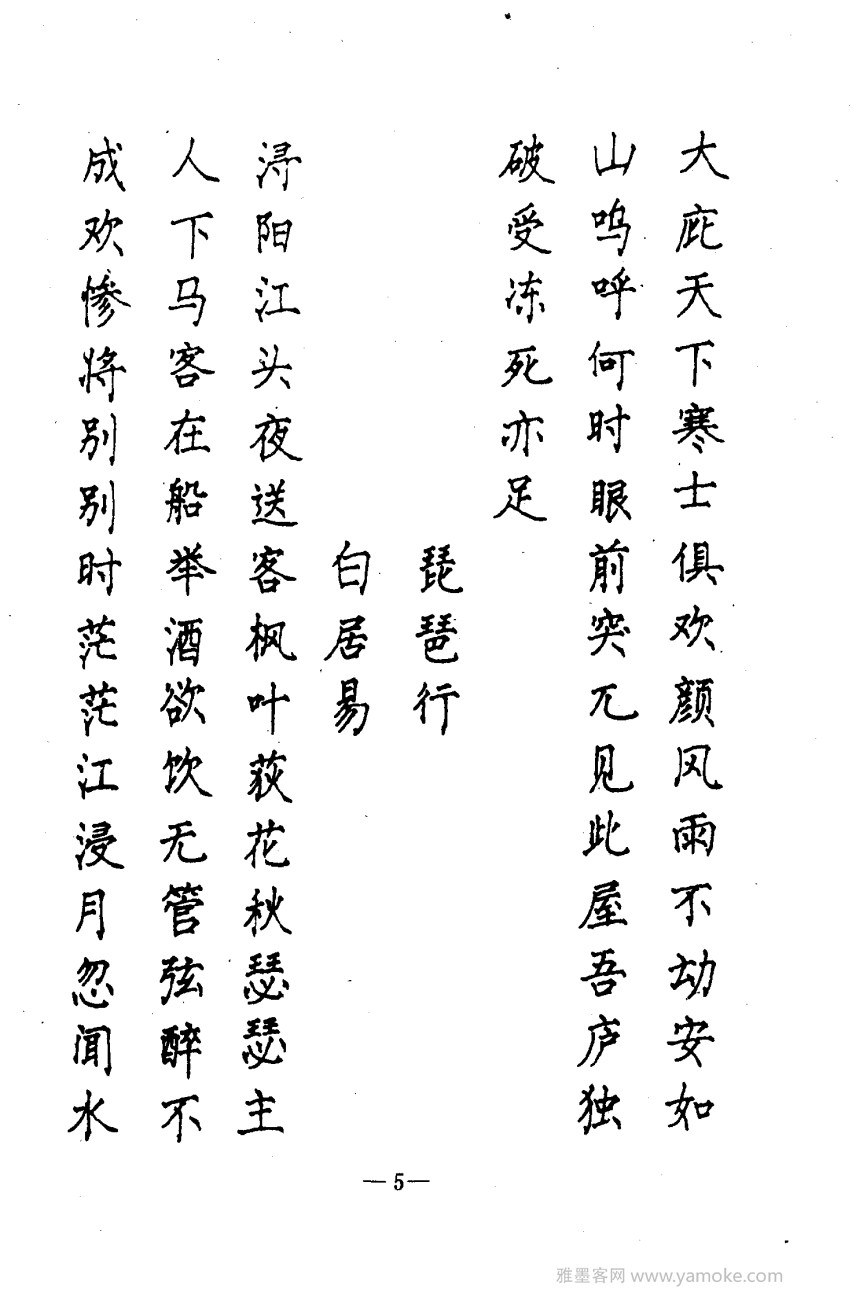 大庇天下寒士俱欢颜风雨不动安如
山呜呼何时眼前突兀见此屋吾庐独
破受冻死亦足
琵琶行
白居易
浔阳江头夜送客枫叶荻花秋瑟瑟主
人下马客在船举酒欲饮无管弦醉不
成欢惨将别别时茫茫江浸月忽闻水
—5—
雅墨客网 www.yamoke.com